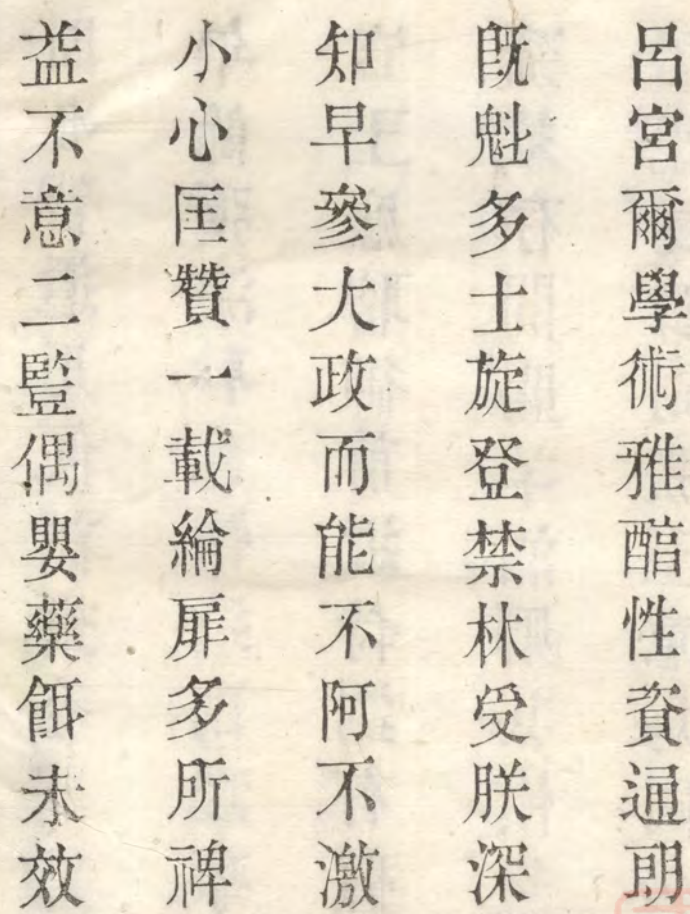 呂宮爾學術雅醕性資通朗
旣魁多士旋登禁林受朕深
知早參大政而能不阿不激
小心匡贊一載綸扉多所裨
益不意二豎偶嬰藥餌未效